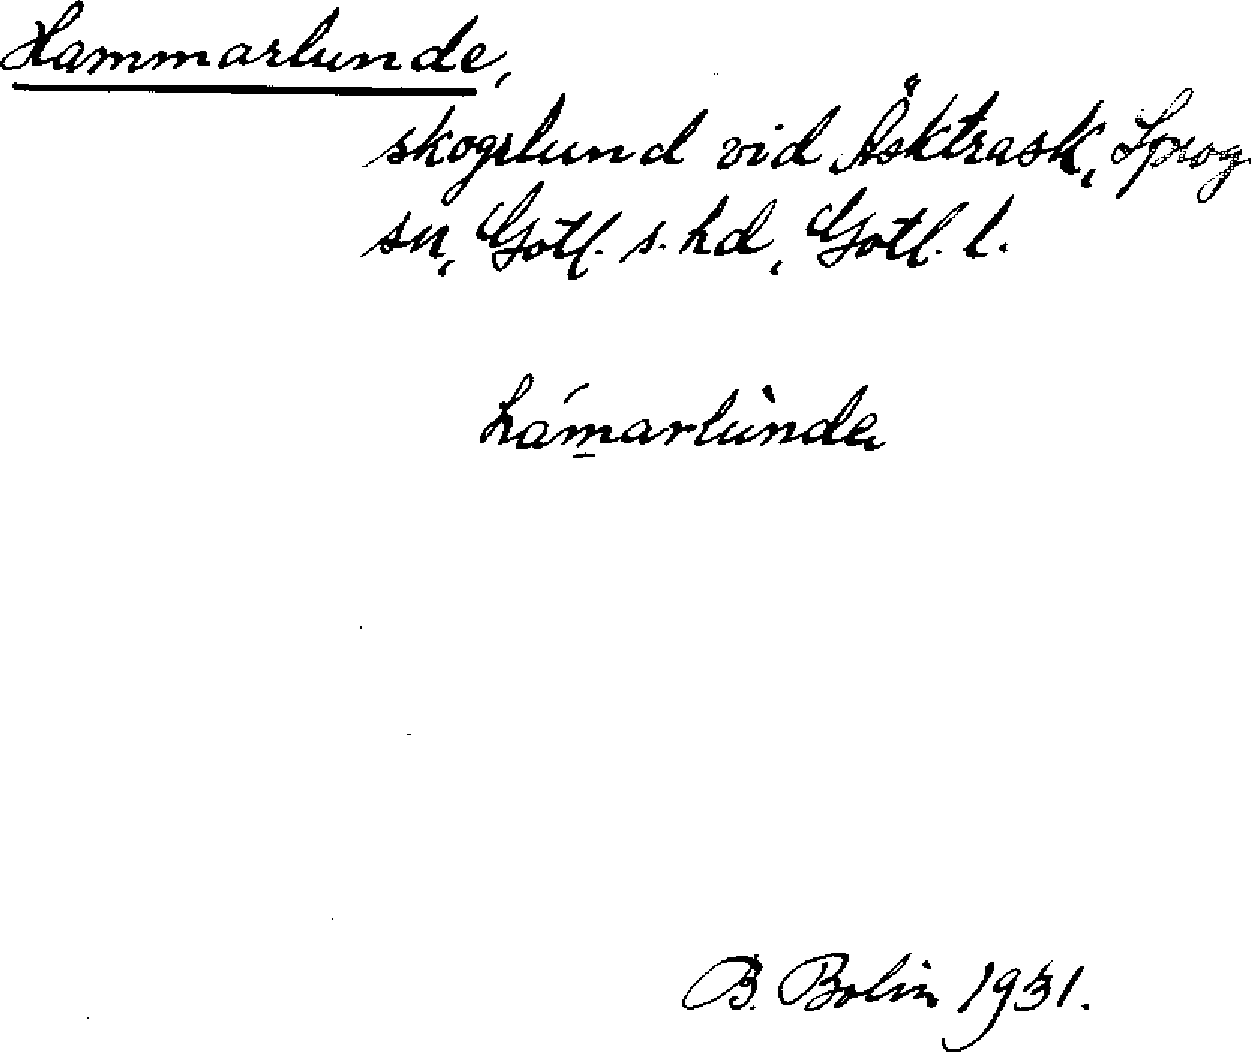 Hammarlunde,
skogslund vid Åsktrask, Sprog
sn, Gotl. s. hd, Gotl. l.
hámarlùnde
B. Bolin 1931.